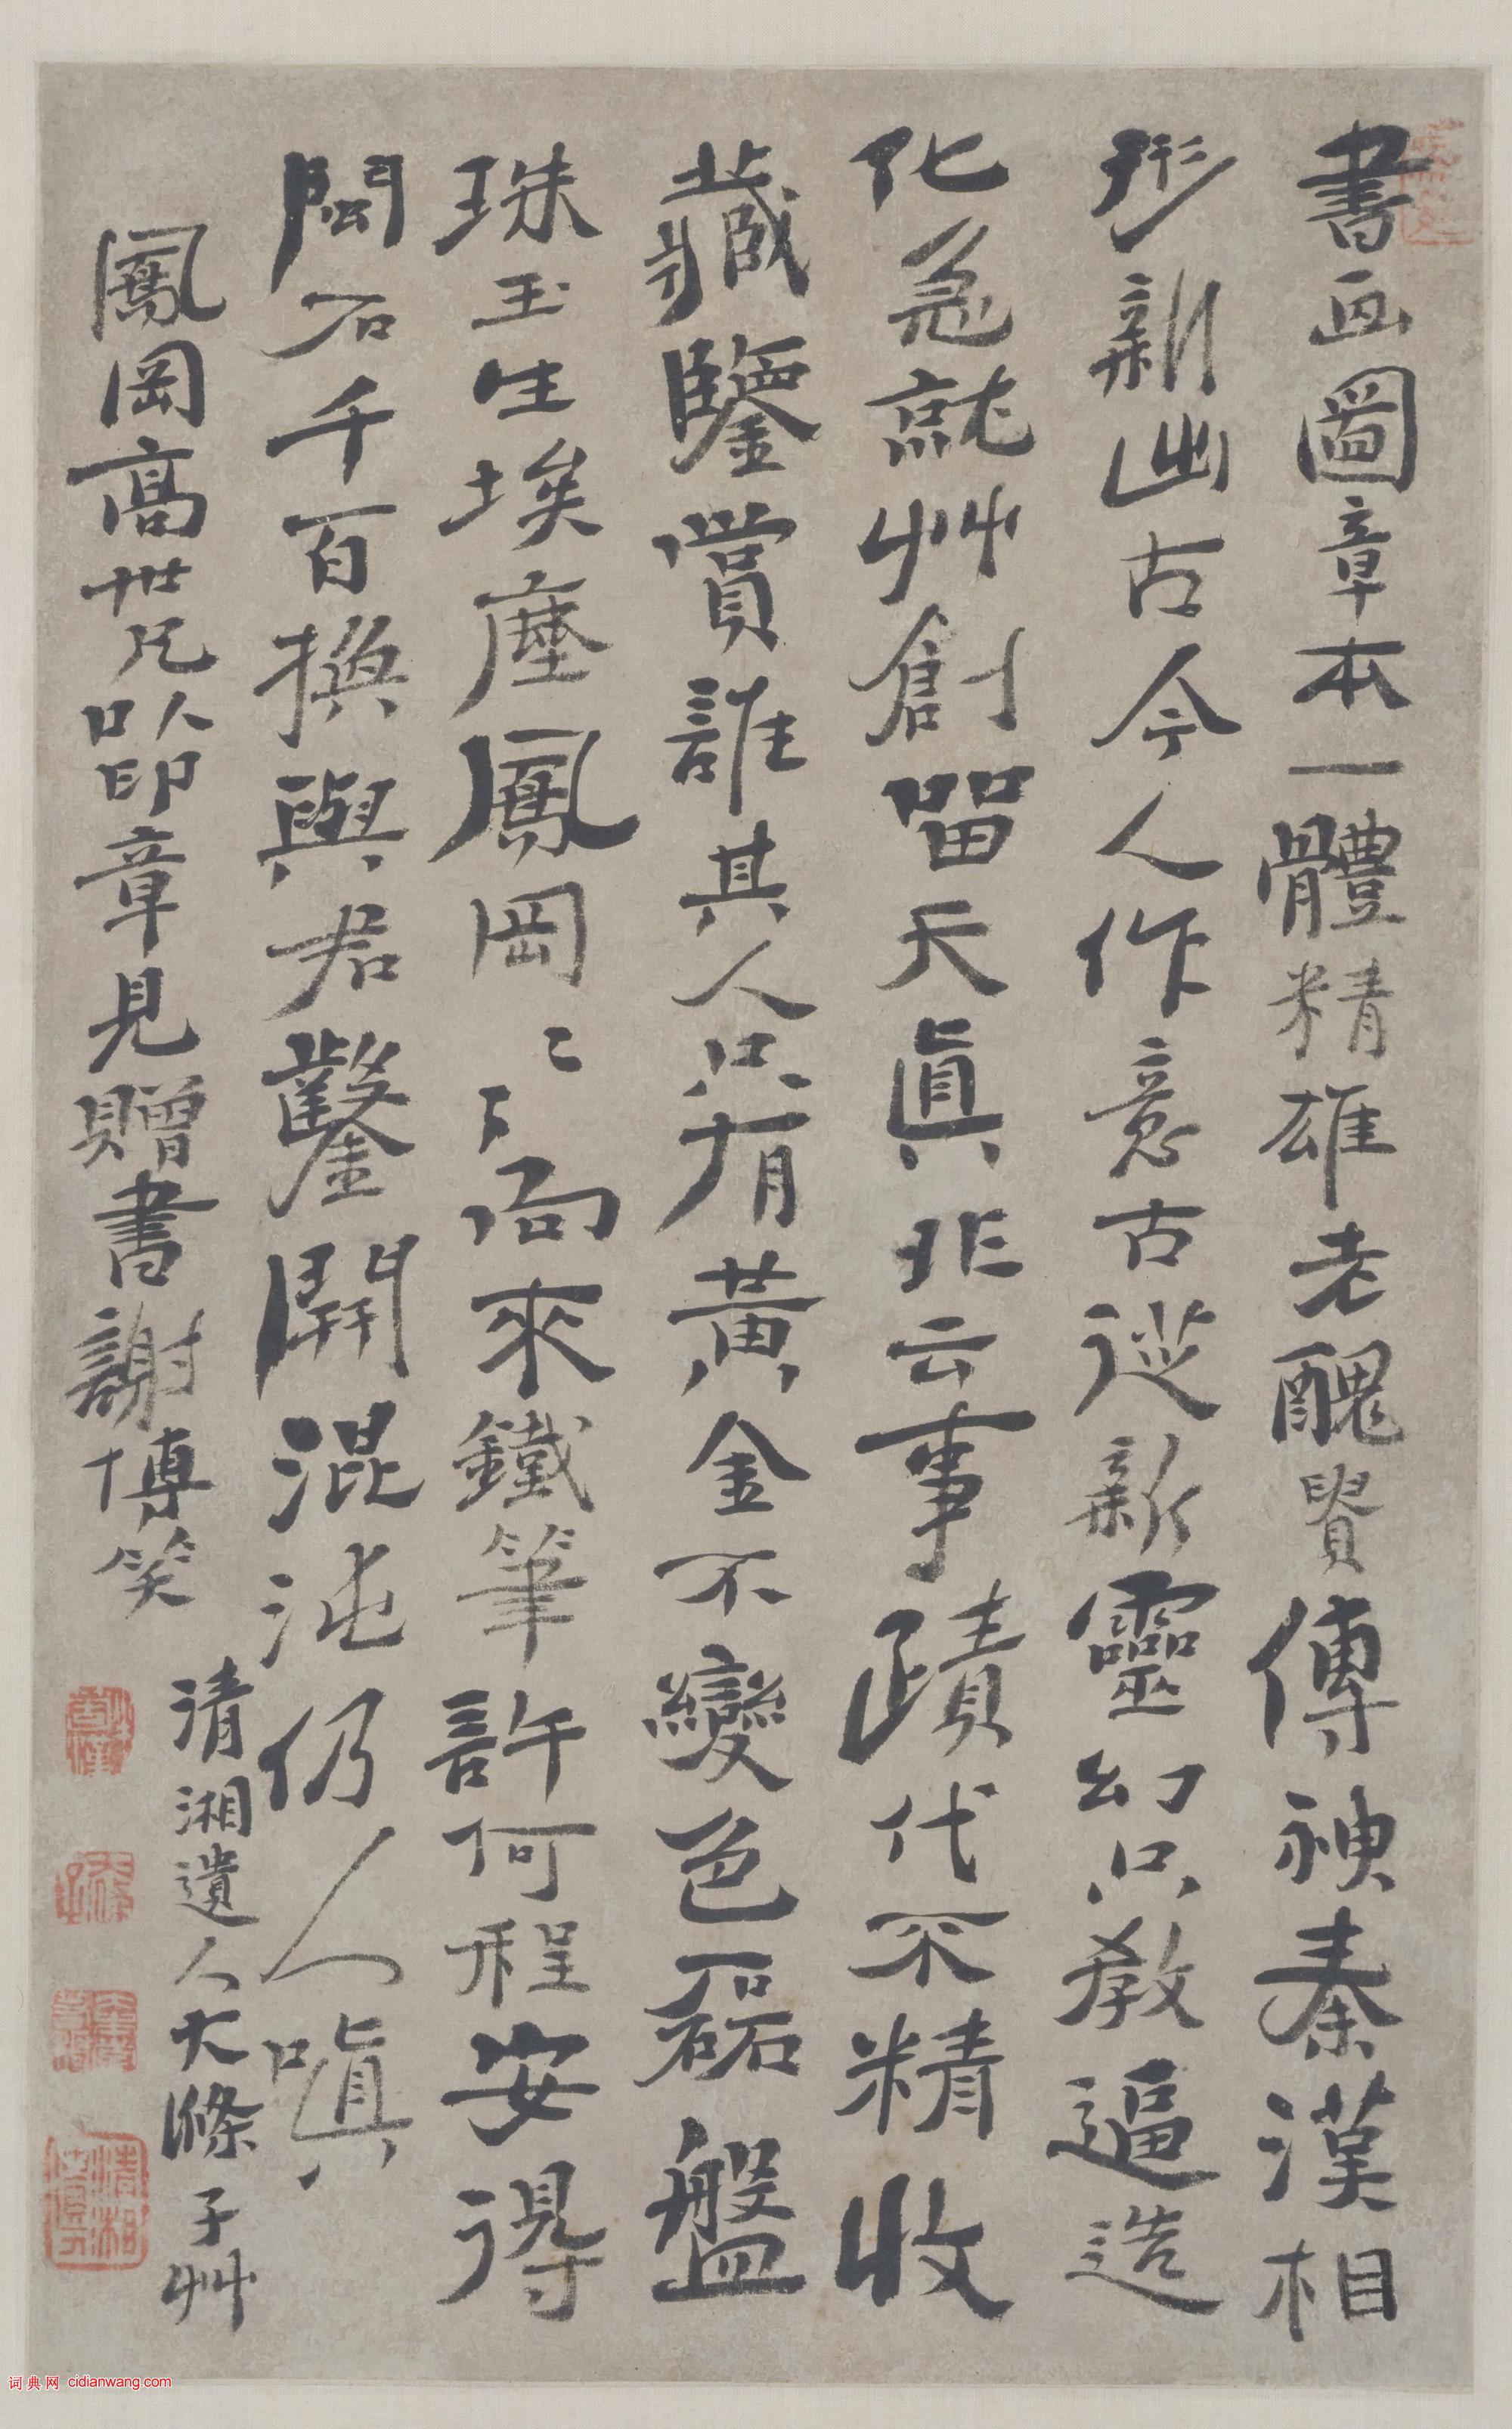 書画圖章本一體精雄老醜貴傳神秦漢相
形新出古今人作意古從新靈幻只教逼造
化急就艸創留天真非云事蹟代不精收
藏鑒賞誰其人只有黃金不變色磊盤
珠玉生埃塵鳳岡鳳岡向來鐵筆許何程安得
閩石千百換與君鑿開混沌仍人嗔
鳳岡高世兄以印章見贈書謝博笑
清湘遺人大滌子艸
词典网 cidianwang.com